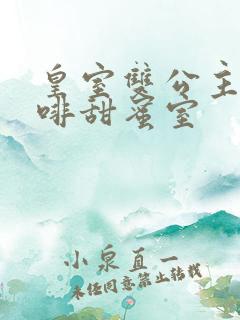 皇室雙公主
啡甜蜜室
小泉直一
未经同意禁止转载